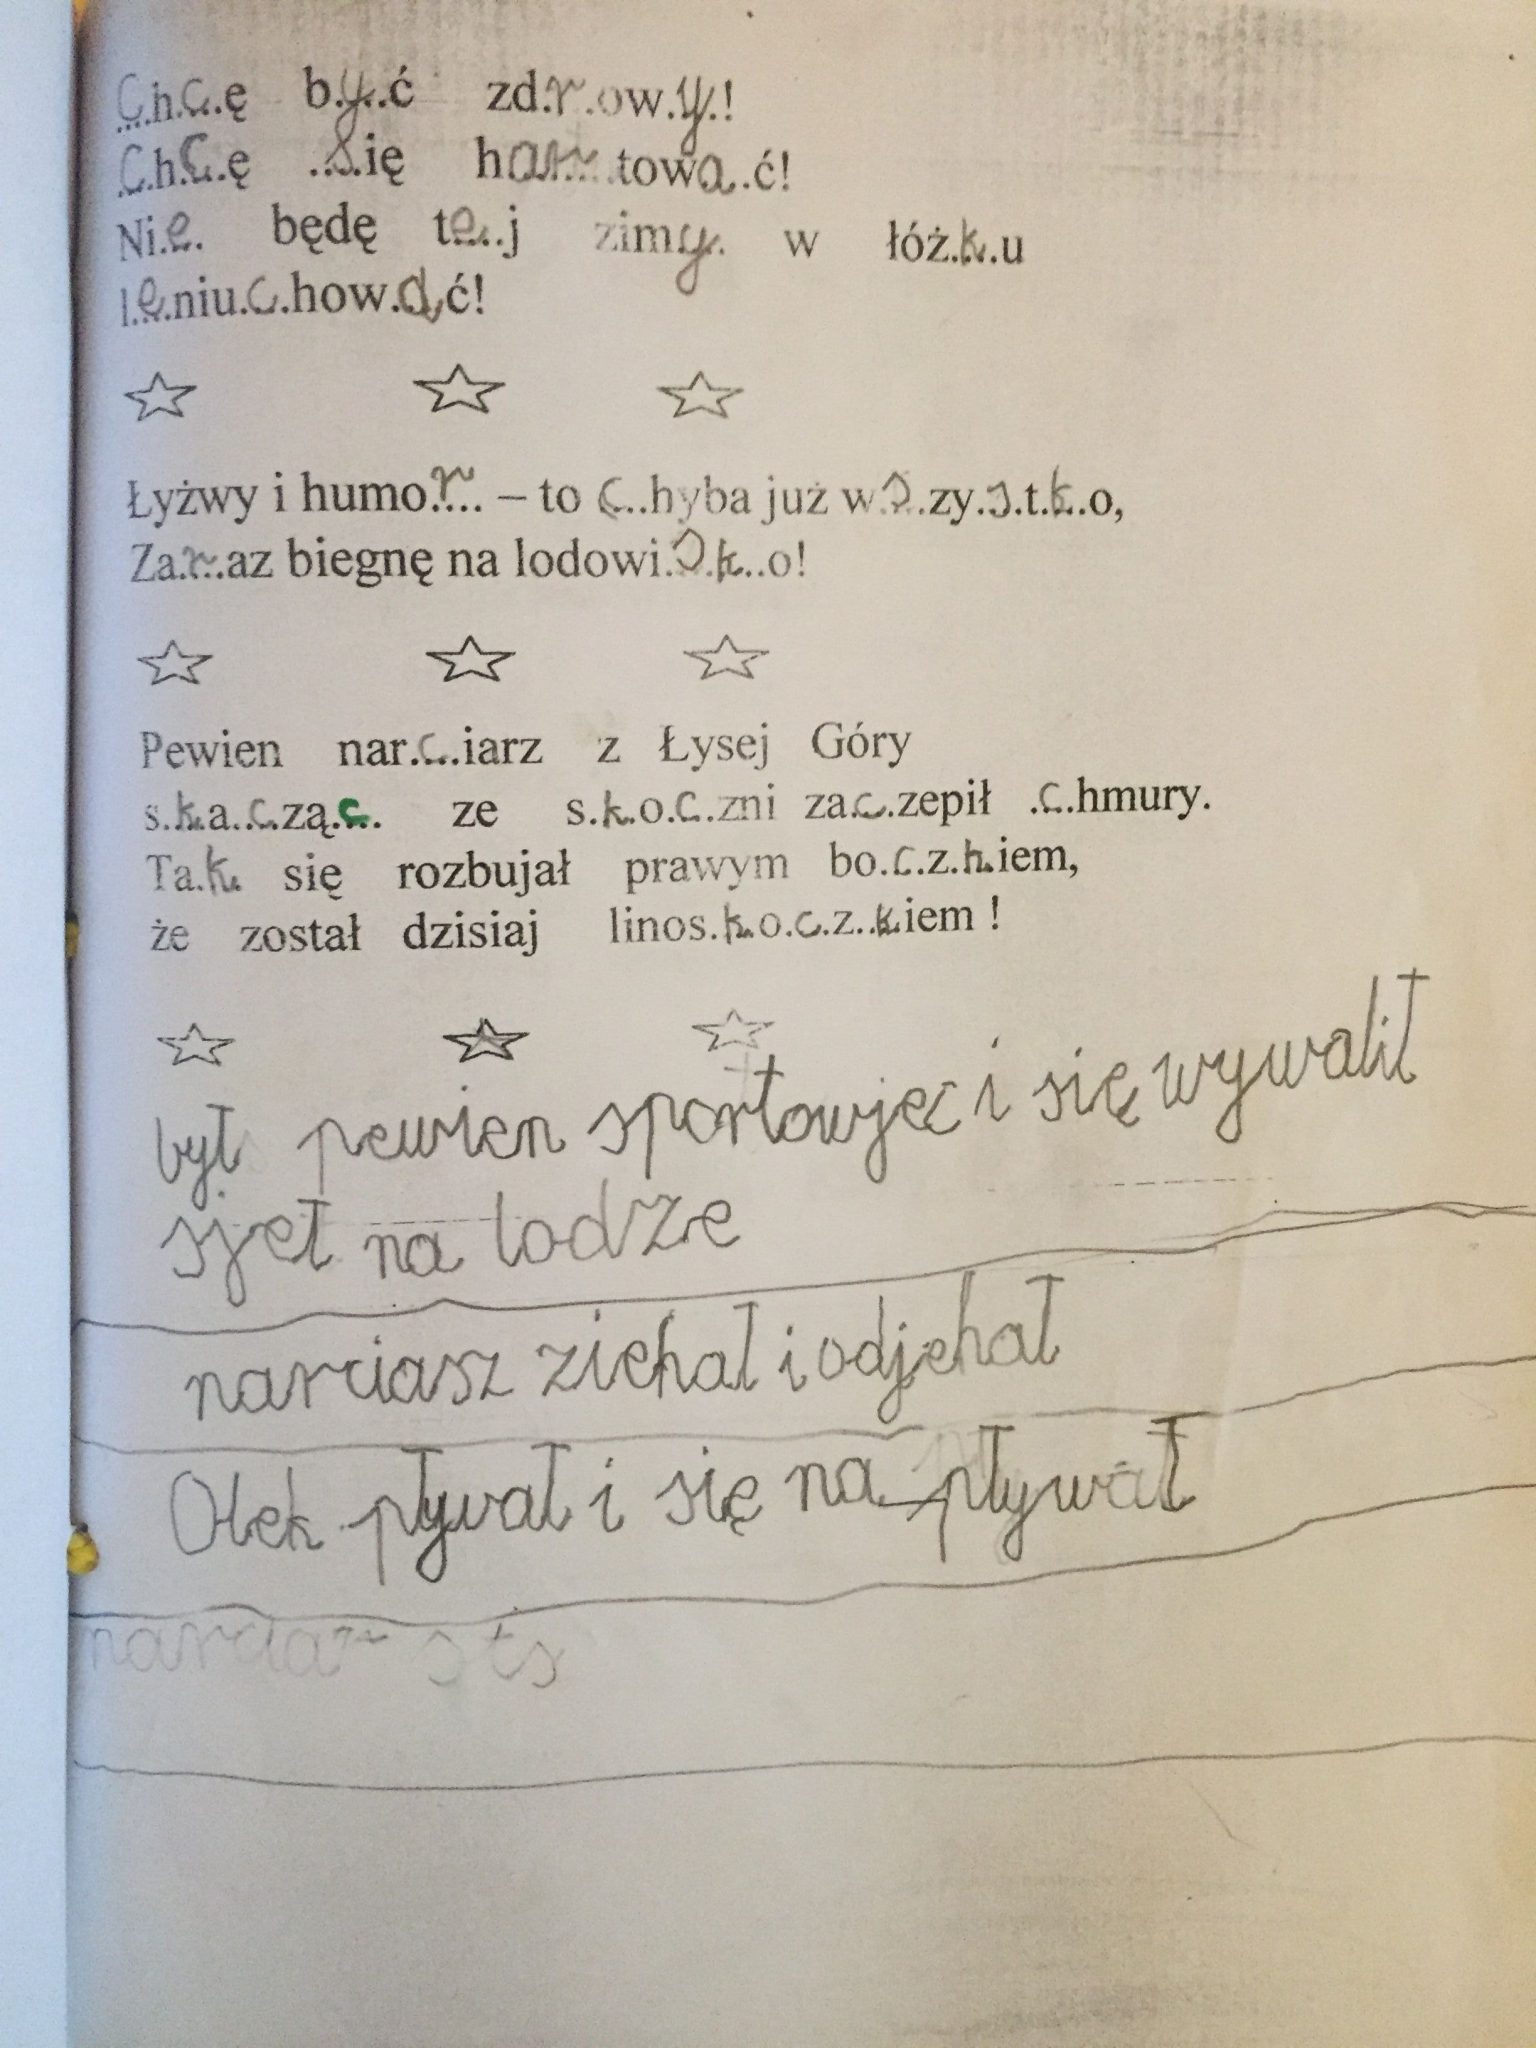 Chcę być zdrowy!
Chcę się hartować!
Nie będę tej zimy w łóżku
leniuchować!
Łyżwy i humor – to chyba już wszystko,
Zaraz biegnę na lodowisko!
Pewien narciarz z Łysej Góry
skacząc ze skoczni zaczepił chmury.
Tak się rozbujał prawym boczkiem,
że został dzisiaj linoskoczkiem !
był pewien sportowjec i się wywalił
sjeł na lodze
narciasz ziehał i odjehał
Olek pływał i się na pływał